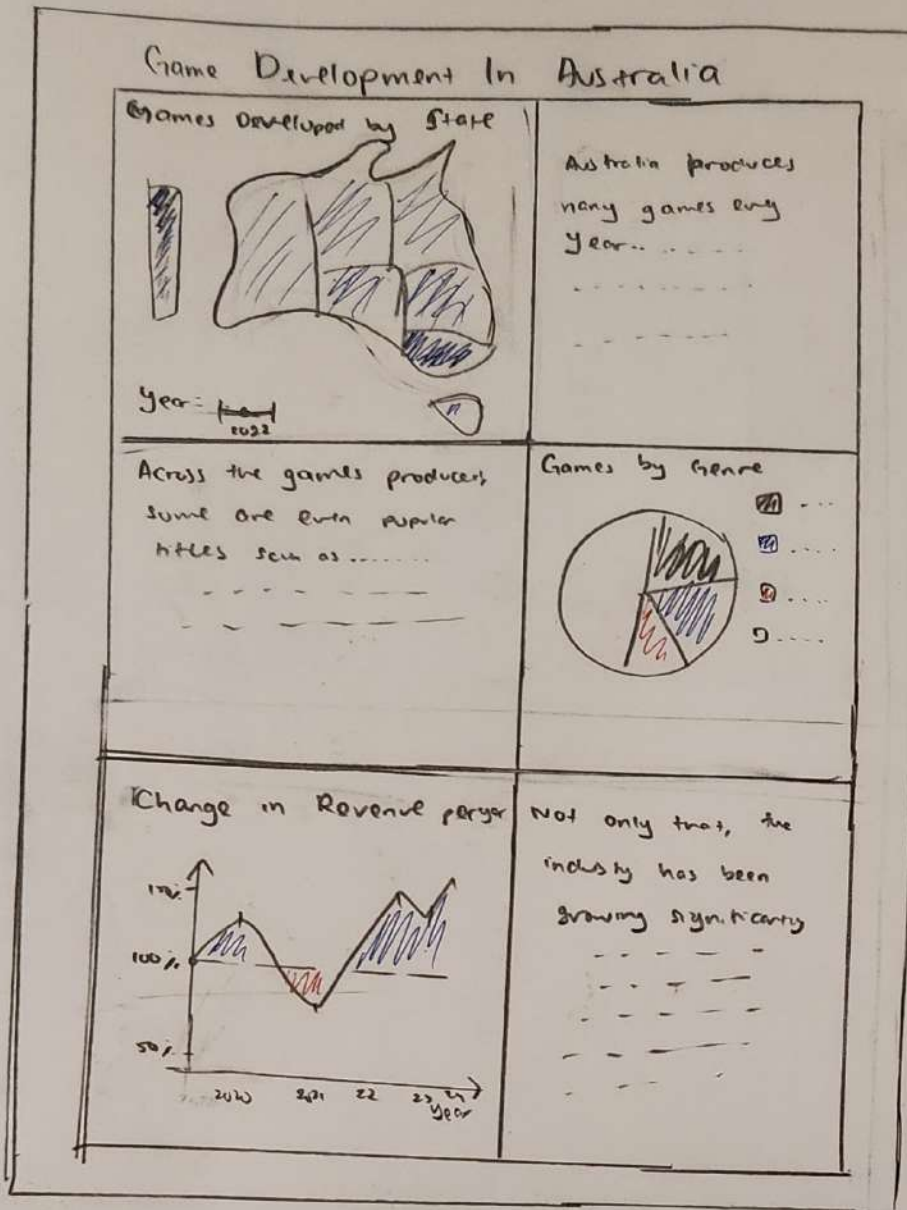 Game Development In Australia
Games Developed by State
Year:
2022
Australia produces
many games every
year.. .....
Across the games producers,
some are even popular
titles such as .......
Games by Genre
....
....
....
....
Change in Revenue peryer
100%
50%
2020 2021 22 23 24
Year
Not only that, the
industry has been
growing significantly